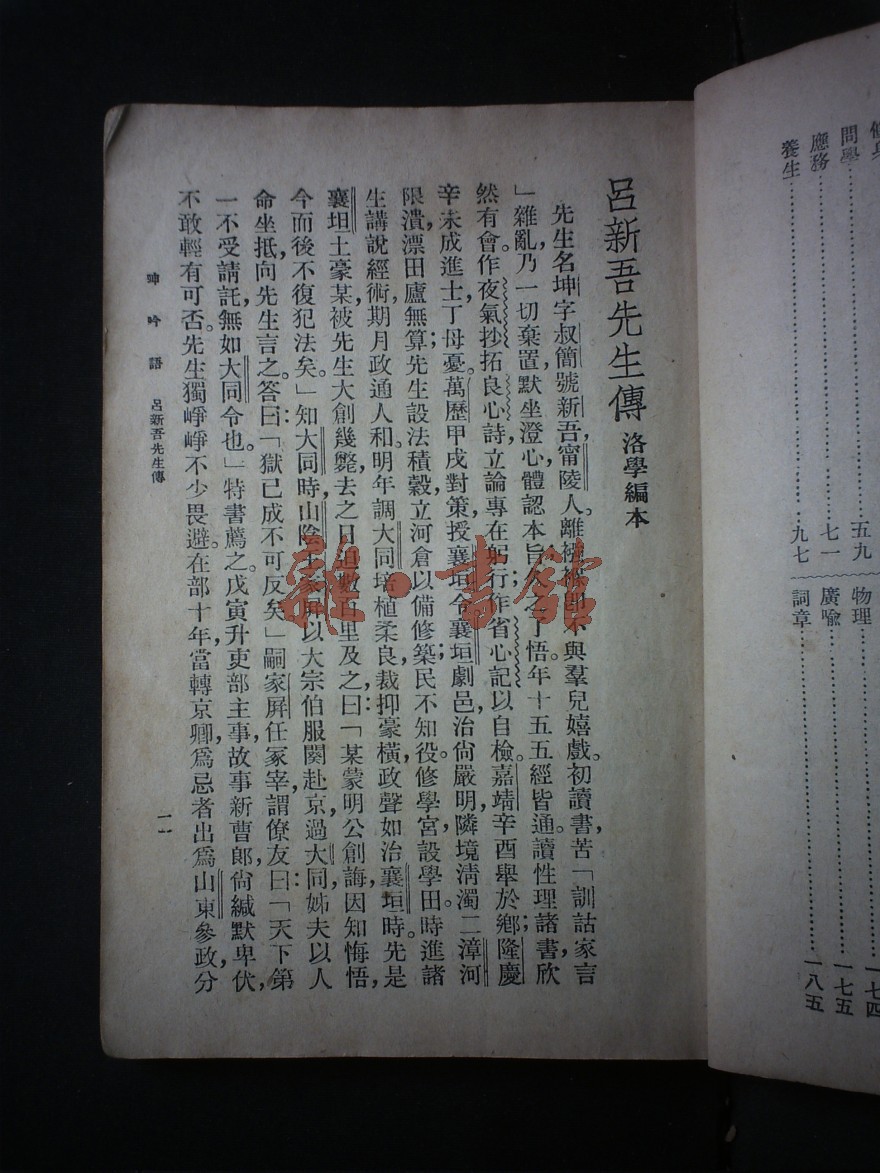 問學……五九
應務……七一
養生……九七
物理……一七四
廣喻……一七五
詞章……一八五
呂新吾先生傳 洛學編本
先生名坤字叔簡號新吾,甯陵人。離襁褓即不與羣兒嬉戲。初讀書,苦「訓詁家言
」雜亂,乃一切棄置,默坐澄心,體認本旨,久之了悟。年十五五經皆通。讀性理諸書,欣
然有會。作夜氣抄拓良心詩,立論專在躬行;作省心記以自檢。嘉靖辛酉舉於鄉;隆慶
辛未成進士,丁母憂。萬歷甲戌對策,授襄垣令。襄垣劇邑,治尙嚴明,隣境淸濁二漳河
限潰,漂田廬無算;先生設法積穀立河倉以備修築,民不知役。修學宮,設學田,時進諸
生講說經術,期月政通人和。明年調大同,培植柔良,裁抑豪橫,政聲如治襄垣時。先是
襄垣土豪某,被先生大創幾斃,去之日,追數百里及之,曰:「某蒙明公創誨,因知悔悟,
今而後不復犯法矣。」知大同時,山陰王家屏以大宗伯服闋赴京,過大同,姊夫以人
命坐抵,向先生言之。答曰:「獄已成,不可反矣。」嗣家屏任冢宰,謂僚友曰:「天下第
一不受請託,無如大同令也。」特書薦之。戊寅升吏部主事,故事新曹郞,尙緘默卑伏,
不敢輕有可否。先生獨崢崢不少畏避。在部十年,當轉京卿,爲忌者出爲山東參政,分
呻吟語 呂新吾先生傳 一一
雜·書館